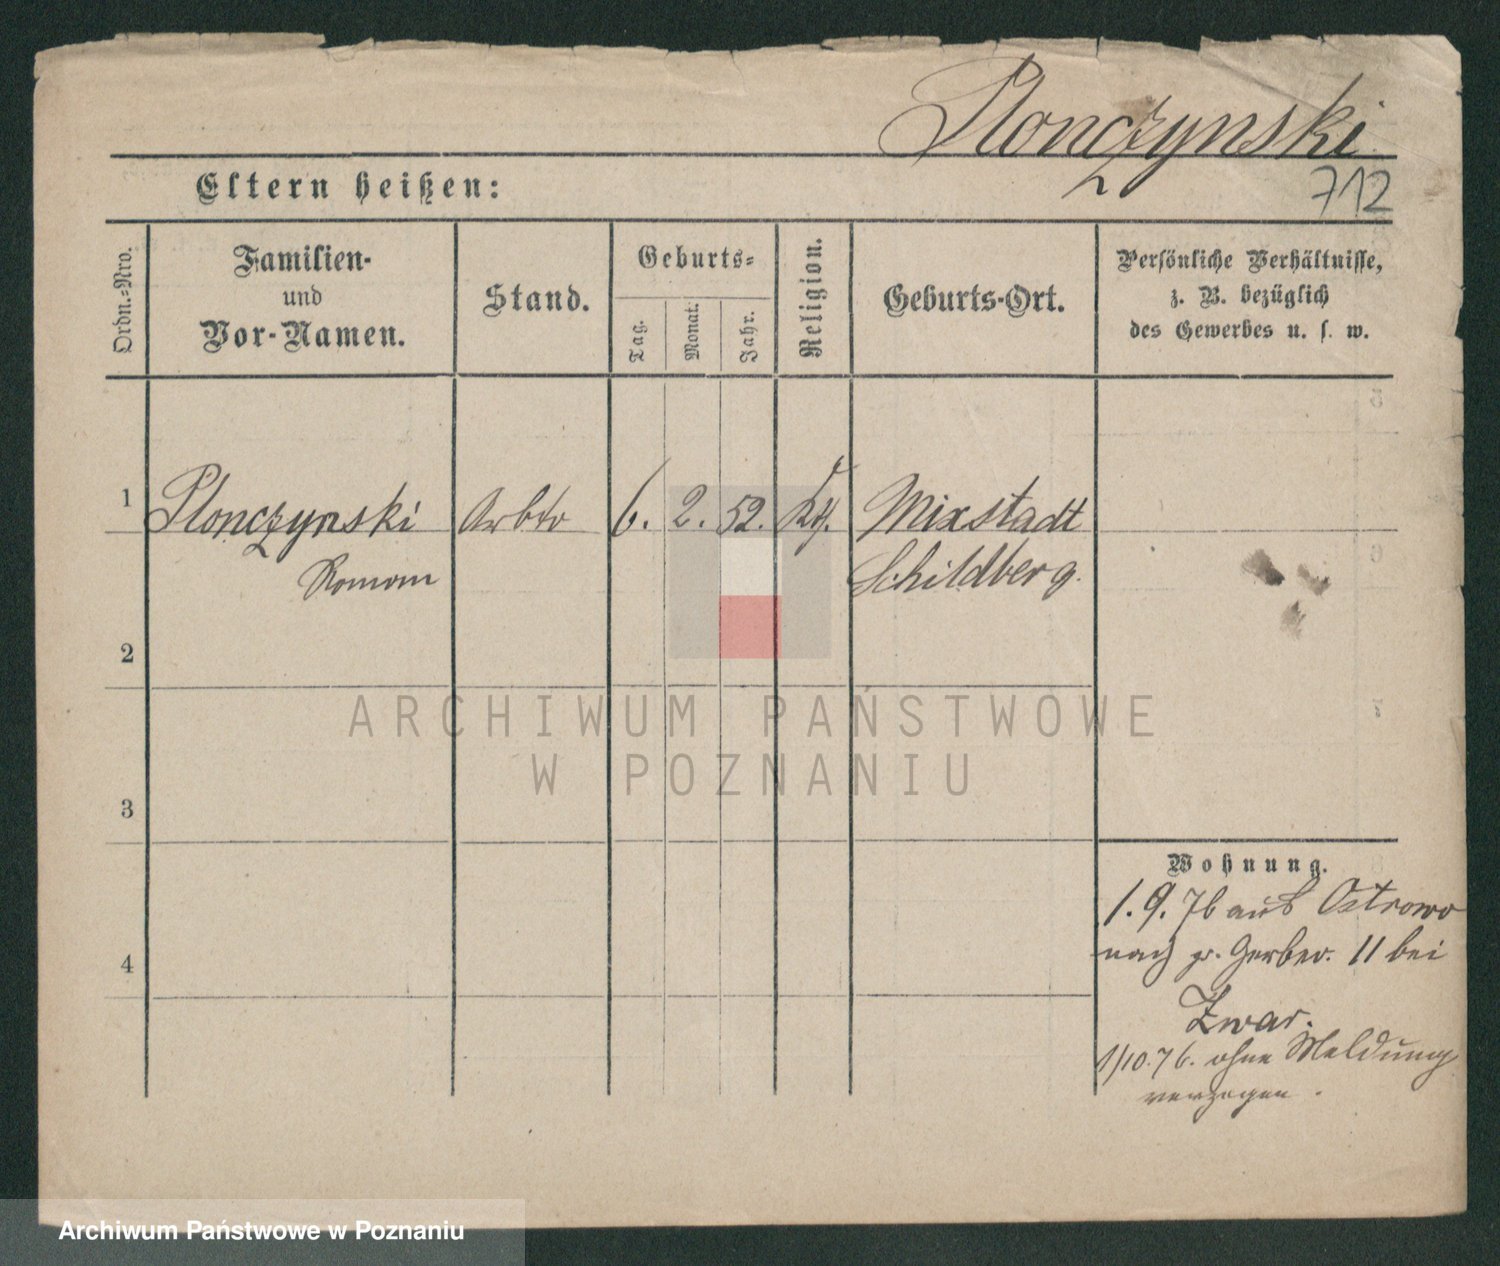 Plonczynski
712
Eltern heißen:
Ordn.-Nro.
Familien-
und
Vor-Namen.
Stand.
Geburts-
Tag.
Monat.
Jahr.
Religion.
Geburts-Ort.
Persönliche Verhältnisse,
z. B. bezüglich
des Gewerbes u. s. w.
1 Plonczynski Arbtr 6. 2. 52. kth. Mixstadt
Roman Schildberg.
2
3
4
Wohnung.
1. 9. 76 aus Ostrowo
nach gr. Gerber. 11 bei
Zwar.
1/10.76. ohne Meldung
verzogen.
ARCHIWUM PAŃSTWOWE
W POZNANIU
Archiwum Państwowe w Poznaniu